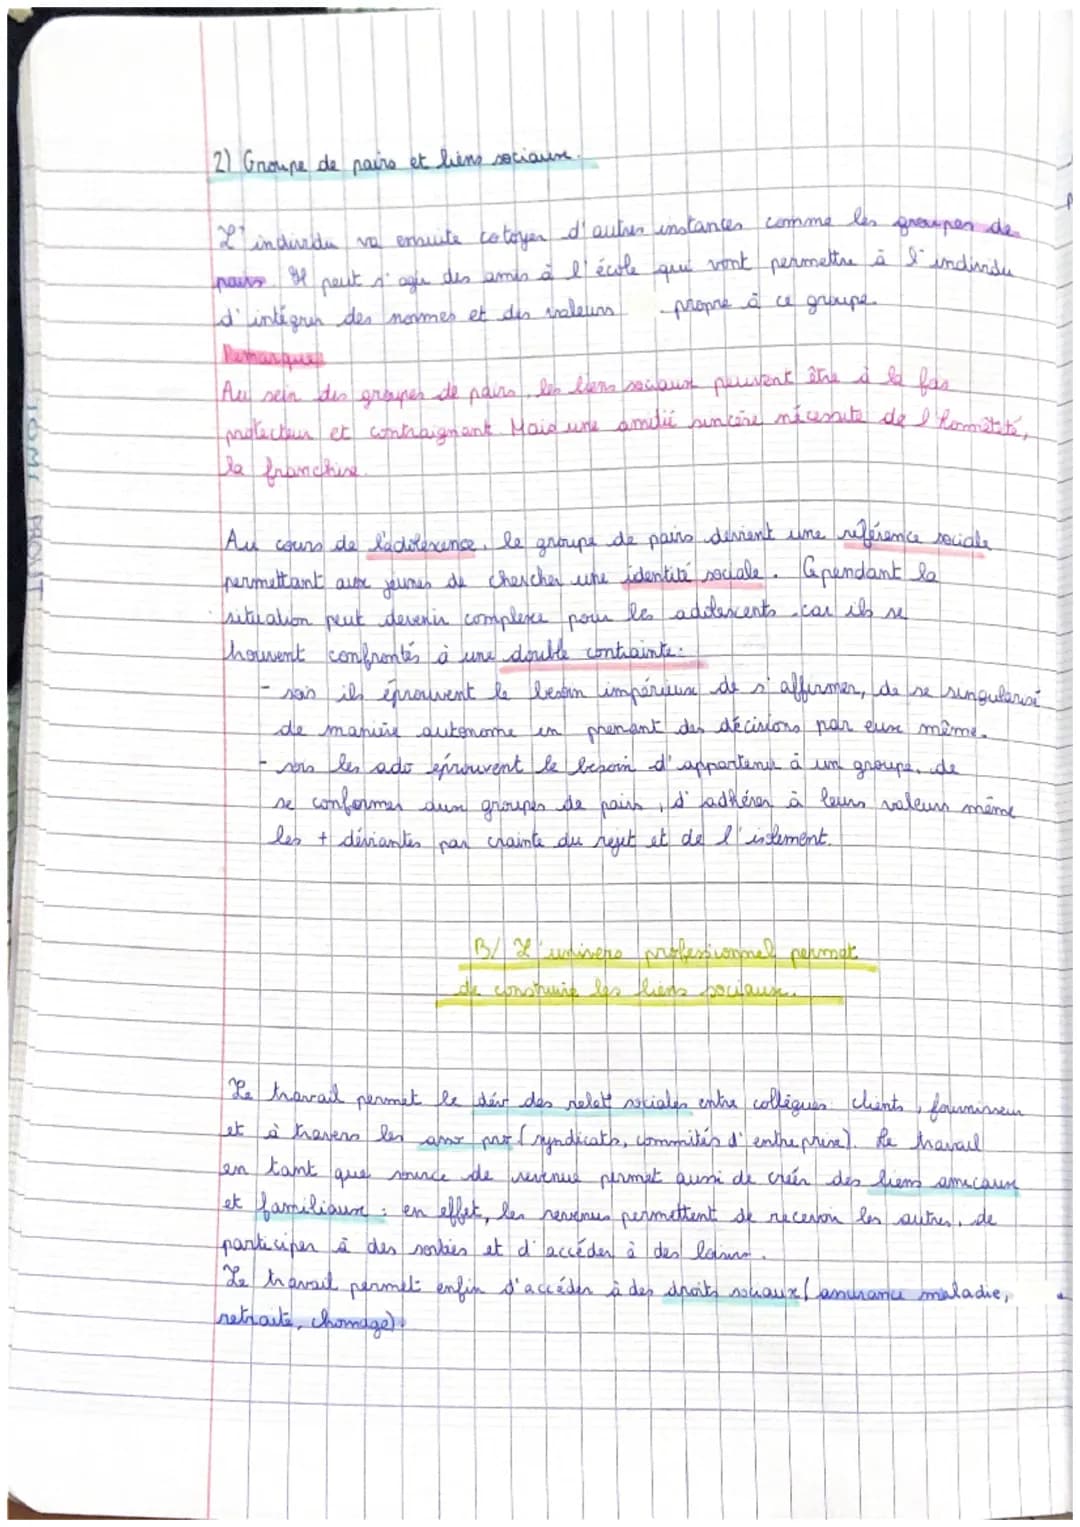 2) Groupe de pairs et liens sociaux.
L'individu va ensuite cotoyer d'autres instances comme les groupes de
pairs. Il peut s'agir des amis à l'école qui vont permettre à l'individu
d'intégrer des normes et des valeurs propre à ce groupe.
Remarques
Au sein des groupes de pairs, les liens sociaux peuvent être à la fois
protecteur et contraignant. Mais une amitié sincère nécessite de l'honnêteté,
la franchise.
Au cours de l'adolescence, le groupe de pairs devient une référence sociale
permettant aux jeunes de chercher une identité sociale. Cependant la
situation peut devenir complexe pour les adolescents car ils se
trouvent confrontés à une double contrainte:
- soir ils éprouvent le besoin impérieux de s'affirmer, de se singularisé
de manière autonome en prenant des décisions par eux même.
- soir les ado éprouvent le besoin d'appartenir à un groupe, de
se conformer aux groupes de pairs, d'adhérer à leurs valeurs même
les + déviantes par crainte du rejet et de l'isolement.
B/ L'univers professionnel permet
de construire les liens sociaux.
Le travail permet le dév des relat° sociales entre collègues clients, fournisseur
et à travers les asso pro (syndicats, commités d'entreprise). Le travail
en tant que source de revenus permet aussi de créer des liens amicaux
et familiaux : en effet, les revenus permettent de recevoir les autres, de
participer à des sorties et d'accéder à des loisirs.
Le travail permet enfin d'accéder à des droits sociaux (assurance maladie,
retraite, chomage).